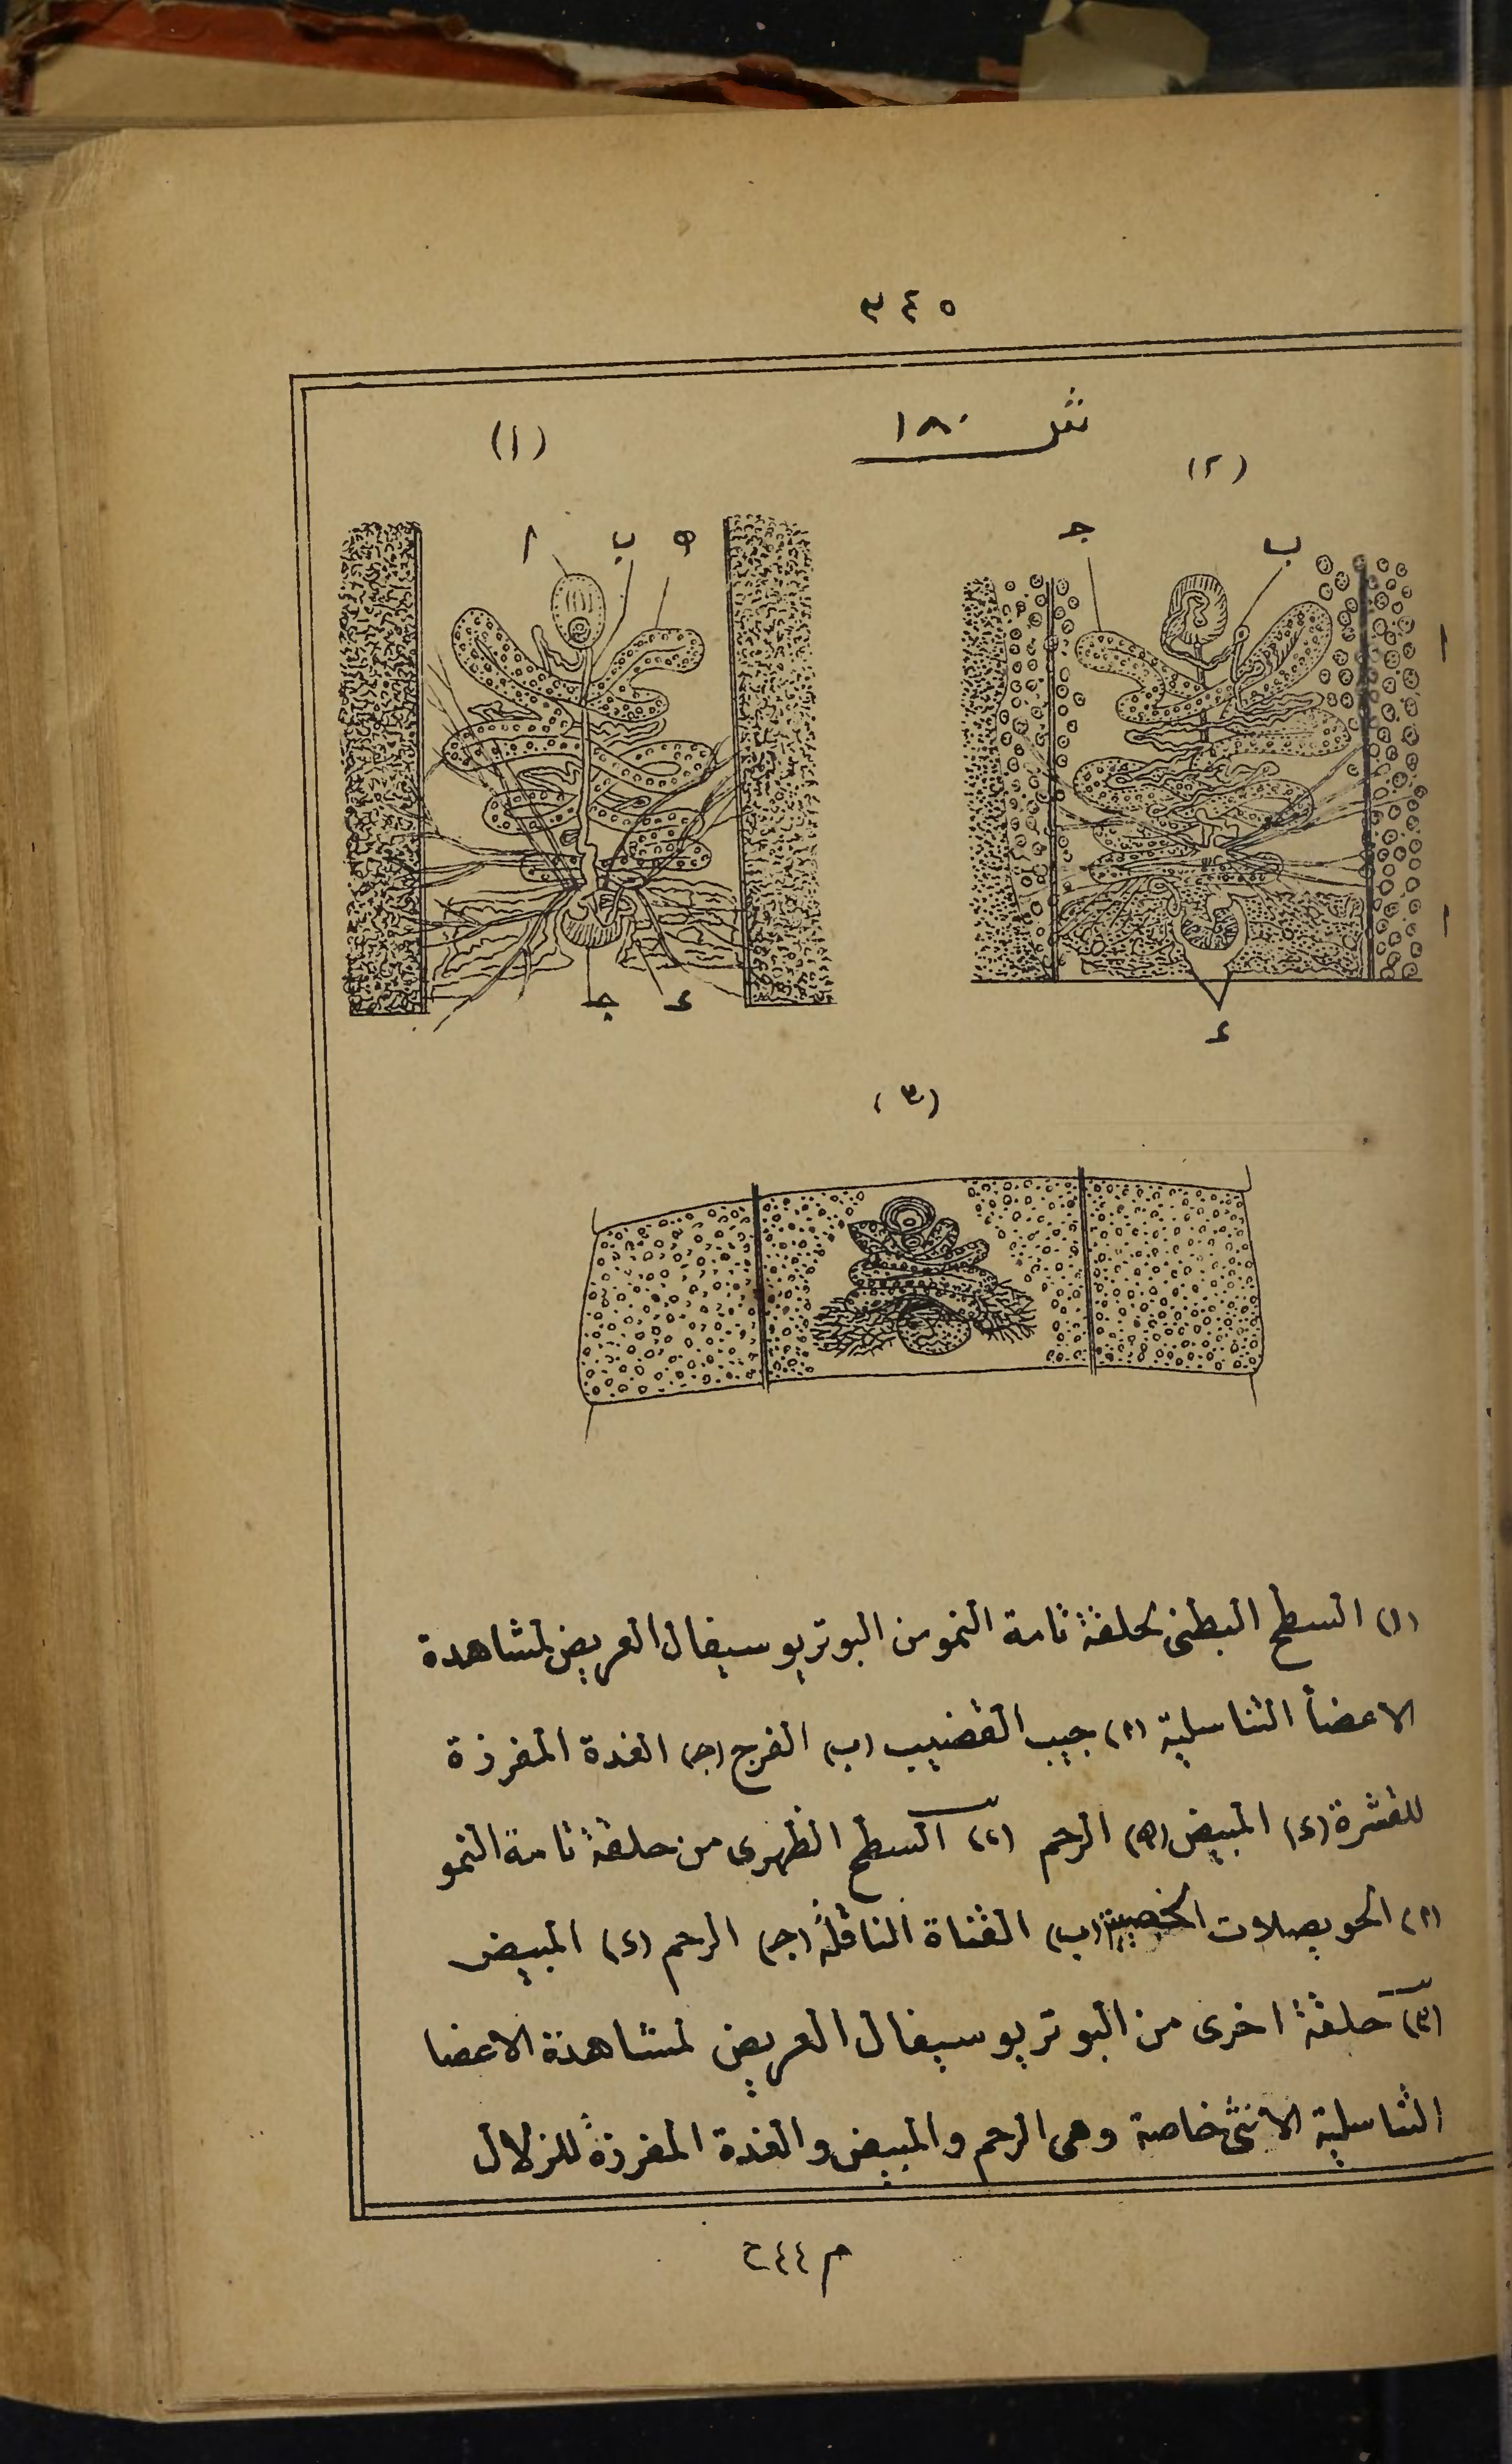 ٣٤٥
شكل ١٨٠
(١)
(٢)
ا ب ه
جـ ب
ا
ا
جـ د
د
(٣)
(١) السطح البطنى لحلقة تامة النمو من البوتريوسيفال العريض لمشاهدة
الاعضا التناسلية (ا) جيب القضيب (ب) الفرج (جـ) الغدة المفرزة
للقشرة (د) المبيض (ه) الرحم (٢) السطح الظهرى من حلقة تامة النمو
(ا) الحويصلات الخصيية (ب) القناة الناقلة (جـ) الرحم (د) المبيض
(٣) حلقة اخرى من البوتريوسيفال العريض لمشاهدة الاعضا
التناسلية الانثى خاصة وهى الرحم والمبيض والغدة المفرزة للزلال
م ٤٤ ح